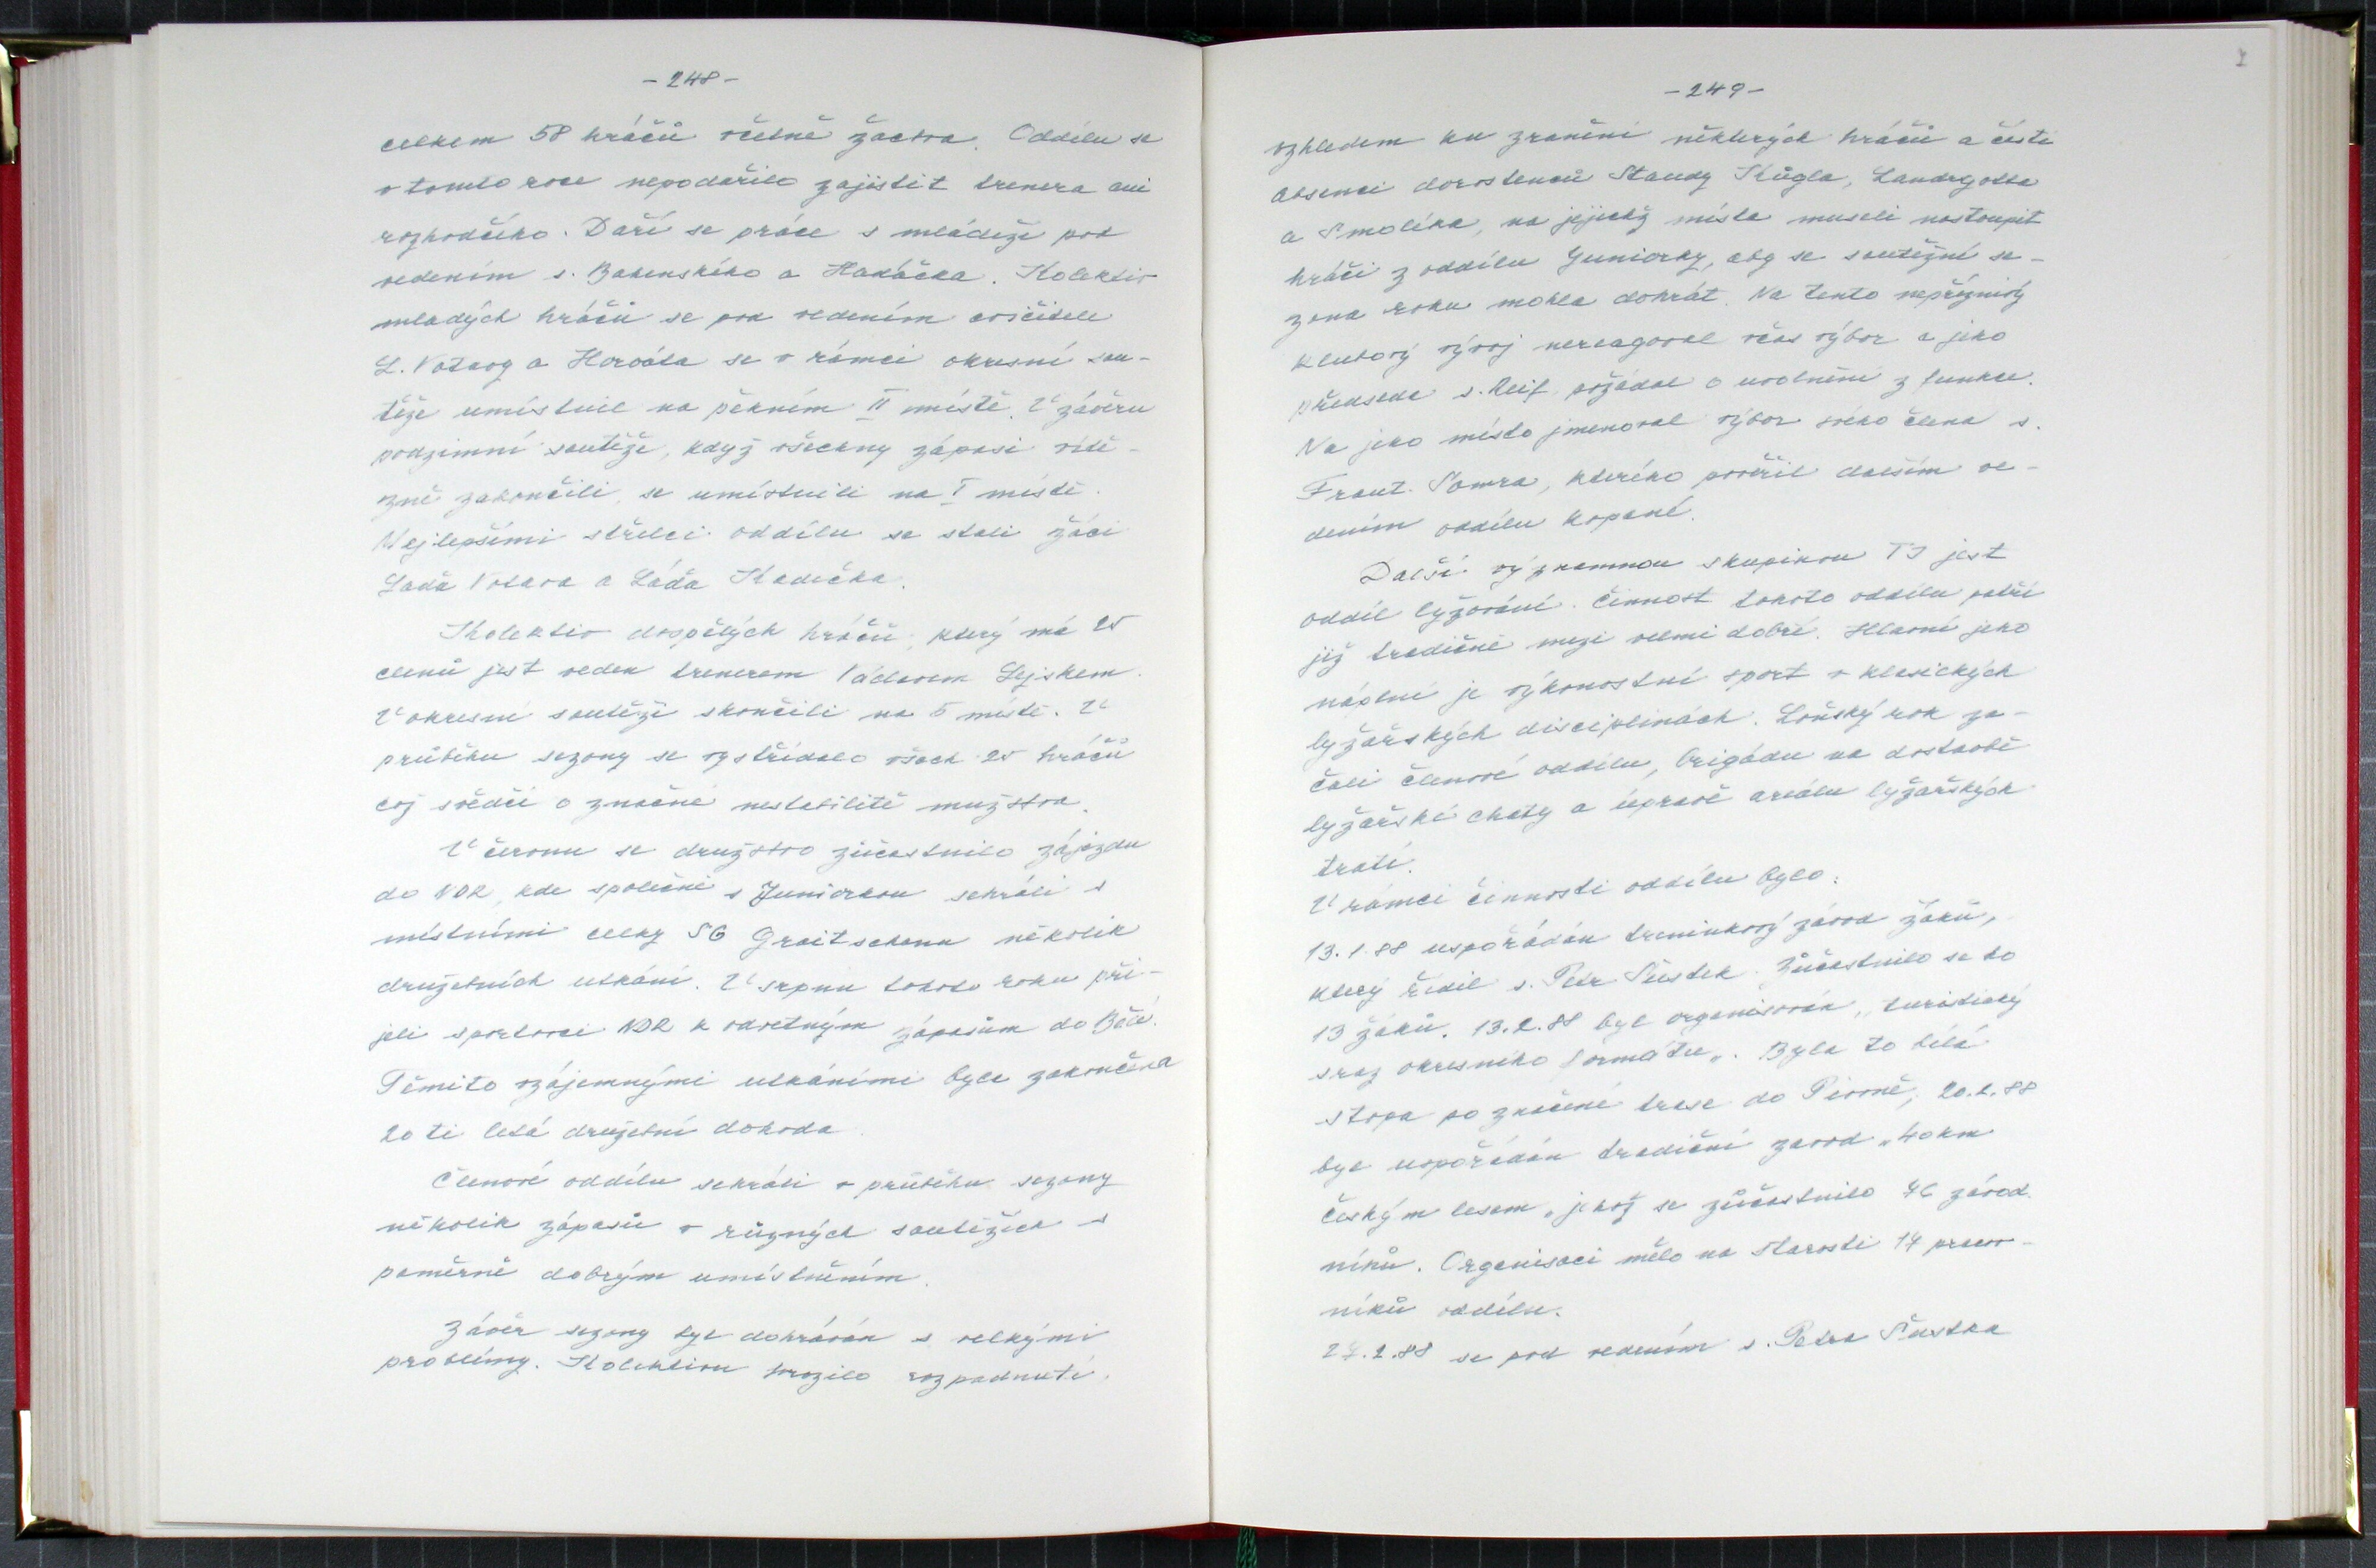 - 248 -
celkem 58 hráčů včetně žactva. Oddílu se
v tomto roce nepodařilo zajistit trenera ani
rozhodčího. Daří se práce s mládeže pod
vedením s. Bakenského a Hadáčka. Kolektiv
mladých hráčů se pod vedením cvičitele
L. Votavy a Horváta se v rámci okresní sou-
těže umístnil na pěkném II místě. V závěru
podzimní soutěže, když všechny zápasi vítě-
zně zakončili, se umístnili na I místě.
Nejlepšími střelci oddílu se stali žáci
Laďa Votava a Láďa Kadečka.
Kolektiv dospělých hráčů, který má 25
clenů jest veden trenerem Václavem Lejskem.
V okresní soutěži skončili na 5 místě. V
průběhu sezony se vystřídalo všech 25 hráčů
což svědčí o značné nestabilitě mužstva.
V červnu se družstvo zúčastnilo zájezdu
do NDR, kde společně s Juniorkou sehráli s
místními celky SG Graitschenu několik
družebních utkání. V srpnu tohoto roku při-
jeli sportovci NDR k odvetným zápasům do Bělé.
Těmito vzájemnými utkáními byla zakončena
20 ti letá družební dohoda.
Členové oddílu sehráli v průběhu sezony
několik zápasů v různých soutěžích s
poměrně dobrým umístněním.
Závěr sezony byl dohráván s velkými
problémy. Kolektivu hrozilo rozpadnutí,
- 249 -
vzhledem ku zranění některých hráčů a části
absenci dorostenců Standy Kůgla, Landrgotta
a Smolíka, na jejichž místa museli nastoupit
hráči z oddílu Juniorky, aby se soutěžní se-
zona roku mohla dohrát. Na tento nepříznivý
klubový vývoj nereagoval včas výbor a jeho
předseda s. Reif požádal o uvolnění z funkce.
Na jeho místo jmenoval výbor svého člena s.
Frant. Samra, kterého pověřil dalším ve-
dením oddílu kopané.
Další významnou skupinou TJ jest
oddíl lyžování. Činnost tohoto oddílu patří
již tradičně mezi velmi dobré. Hlavní jeho
náplní je výkonostní sport v klasických
lyžařských disciplinách. Loňský rok za-
čali členové oddílu, brigádu na dostavbě
lyžařské chaty a úpravě areálu lyžařských
tratí.
V rámci činnosti oddílu bylo:
13. 1. 88 uspořádán treninkový závod žáků,
který řídil s. Petr Šustek. Zůčastnilo se to
13 žáků. 13. 2. 88 byl organisován „turistický
sraz okresního formátu„. Byla to bílá
stopa po značené trase do Pivoně, 20. 2. 88
byl uspořádán tradiční zavod „40 km
českým lesem„ jehož se zůčastnilo 46 závod.
níků. Organisaci mělo na starosti 14 pracov-
níků oddílu.
27. 2. 88 se pod vedením s. Petra Šustka